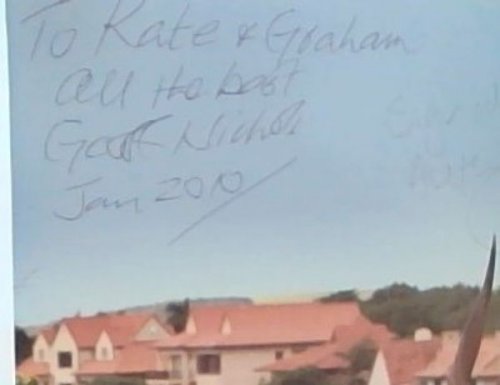 To Kate & Graham
all the best
Geoff Nichols
Jan 2010